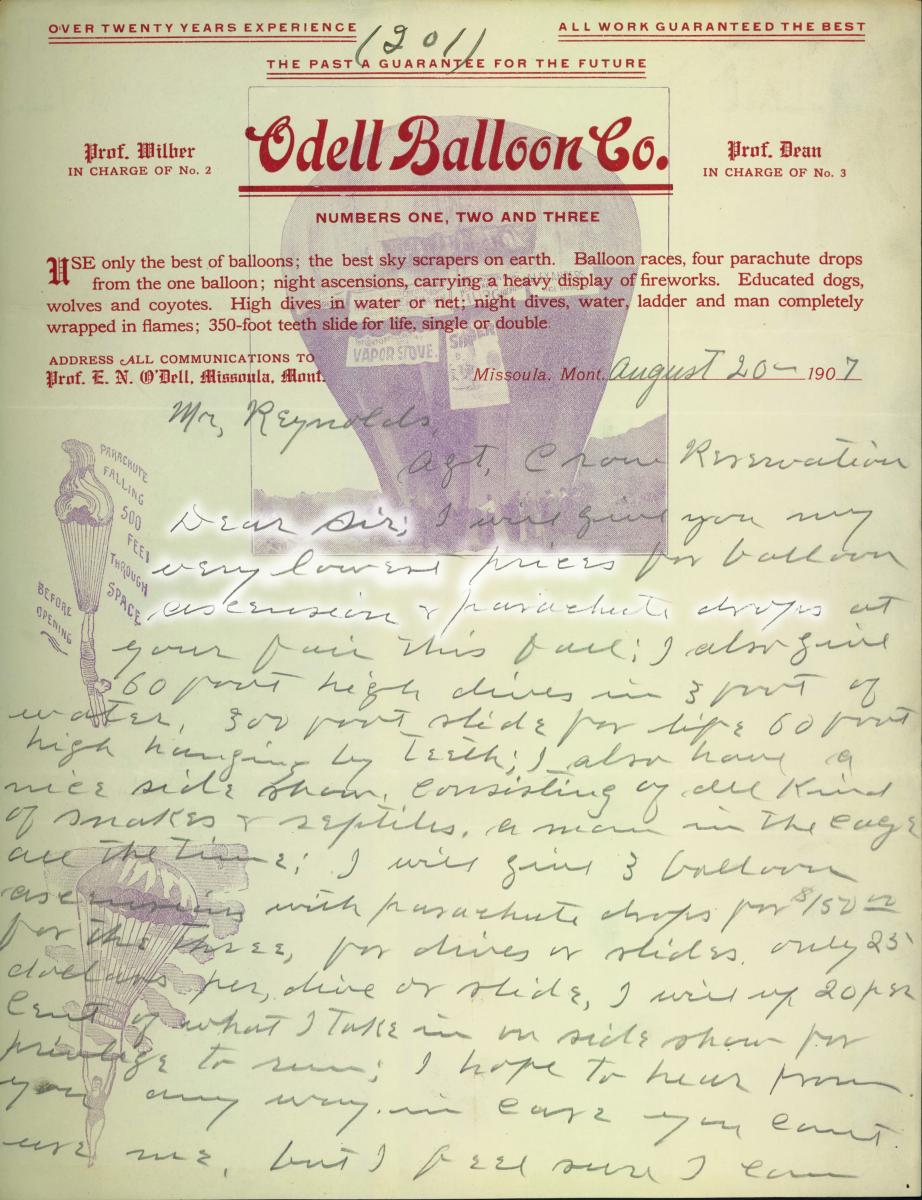 OVER TWENTY YEARS EXPERIENCE
ALL WORK GUARANTEED THE BEST
(201)
THE PAST A GUARANTEE FOR THE FUTURE
Odell Balloon Co.
Prof. Wilber
IN CHARGE OF No. 2
Prof. Dean
IN CHARGE OF No. 3
NUMBERS ONE, TWO AND THREE
USE only the best of balloons; the best sky scrapers on earth. Balloon races, four parachute drops
from the one balloon; night ascensions, carrying a heavy display of fireworks. Educated dogs,
wolves and coyotes. High dives in water or net; night dives, water, ladder and man completely
wrapped in flames; 350-foot teeth slide for life, single or double.
VAPOR STOVE.
ADDRESS ALL COMMUNICATIONS TO
Prof. E. N. O'Dell, Missoula, Mont.
Missoula, Mont. August 20 1907
Mr, Reynolds,
Agt, Crow Reservation
Dear Sir; I will give you my
very lowest prices for balloon
ascension & parachute drops at
your fair this fall; I also give
60 foot high dives in 3 foot of
water, 300 foot slide for life 60 foot
high hanging by teeth; I also have a
nice side show, consisting of all kind
of snakes & reptiles, a man in the cage
all the time; I will give 3 balloon
ascensions with parachute drops for $150 00
for the three, for dives or slides, only 25
dollars per, dive or slide, I will 20 per
cent of what I take in on side show for
privilege to run; I hope to hear from
you any way, in case you cant
use me, but I feel sure I can
PARACHUTE
FALLING
500
FEET
THROUGH
SPACE
BEFORE
OPENING